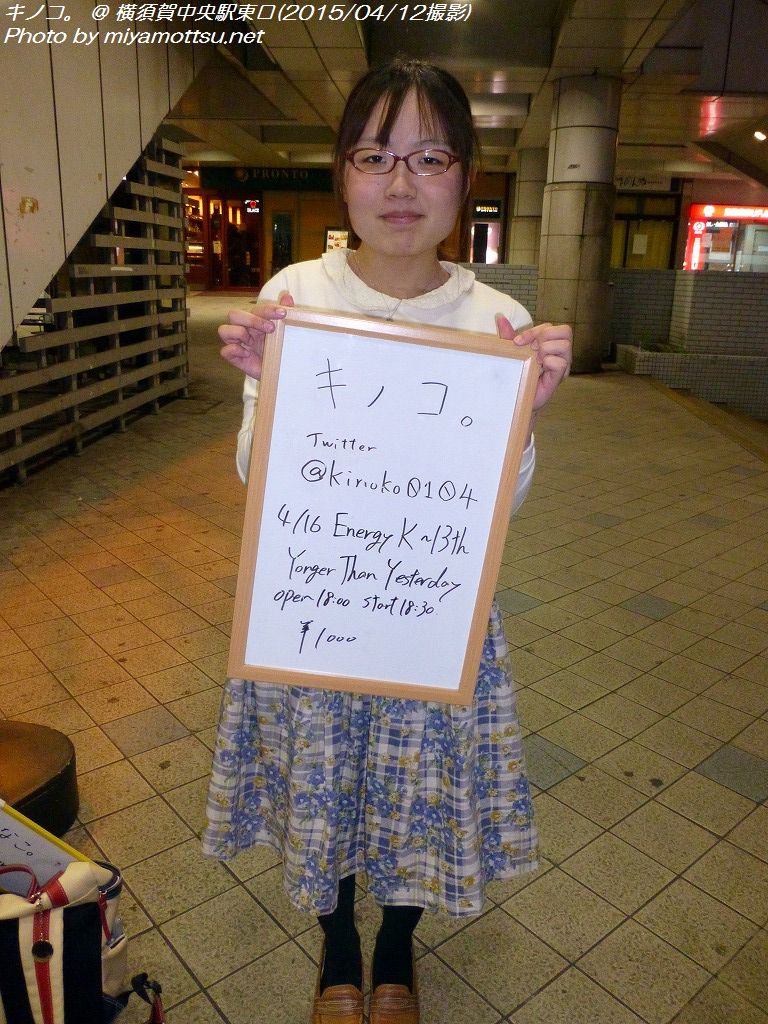 キノコ。 @ 横須賀中央駅東口(2015/04/12撮影)
Photo by miyamottsu.net
PRONTO
キノコ。
Twitter
@kinoko0104
4/16 Energy K~13th
Yonger Than Yesterday
open 18:00 start 18:30.
¥1000